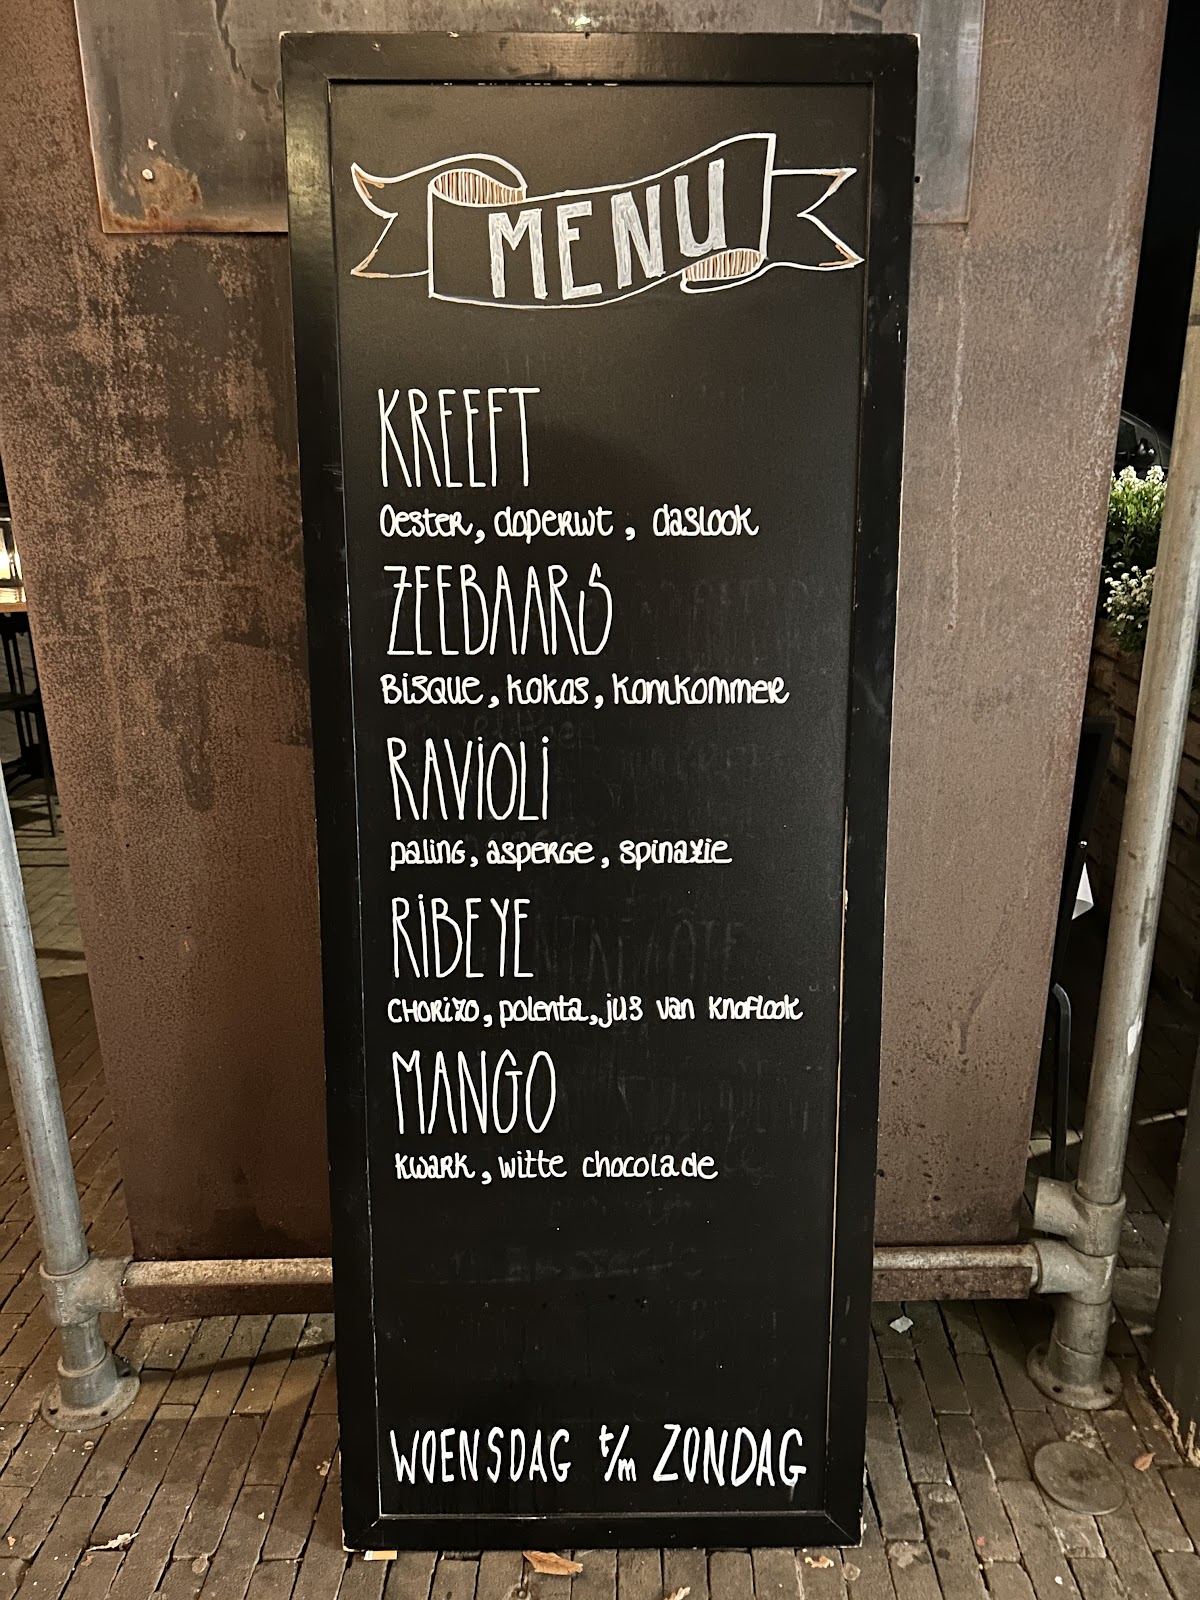 MENU
KREEFT
Oester, doperwt, daslook
ZEEBAARS
Bisque, kokos, komkommer
RAVIOLI
paling, asperge, spinazie
RIBEYE
CHORIZO, polenta, jus van knoflook
MANGO
kwark, witte chocolade
WOENSDAG t/m ZONDAG